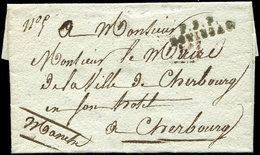 A Monsieur
Monsieur le Maire
de la Ville de Cherbourg
en son hotel
a Cherbourg
Manche